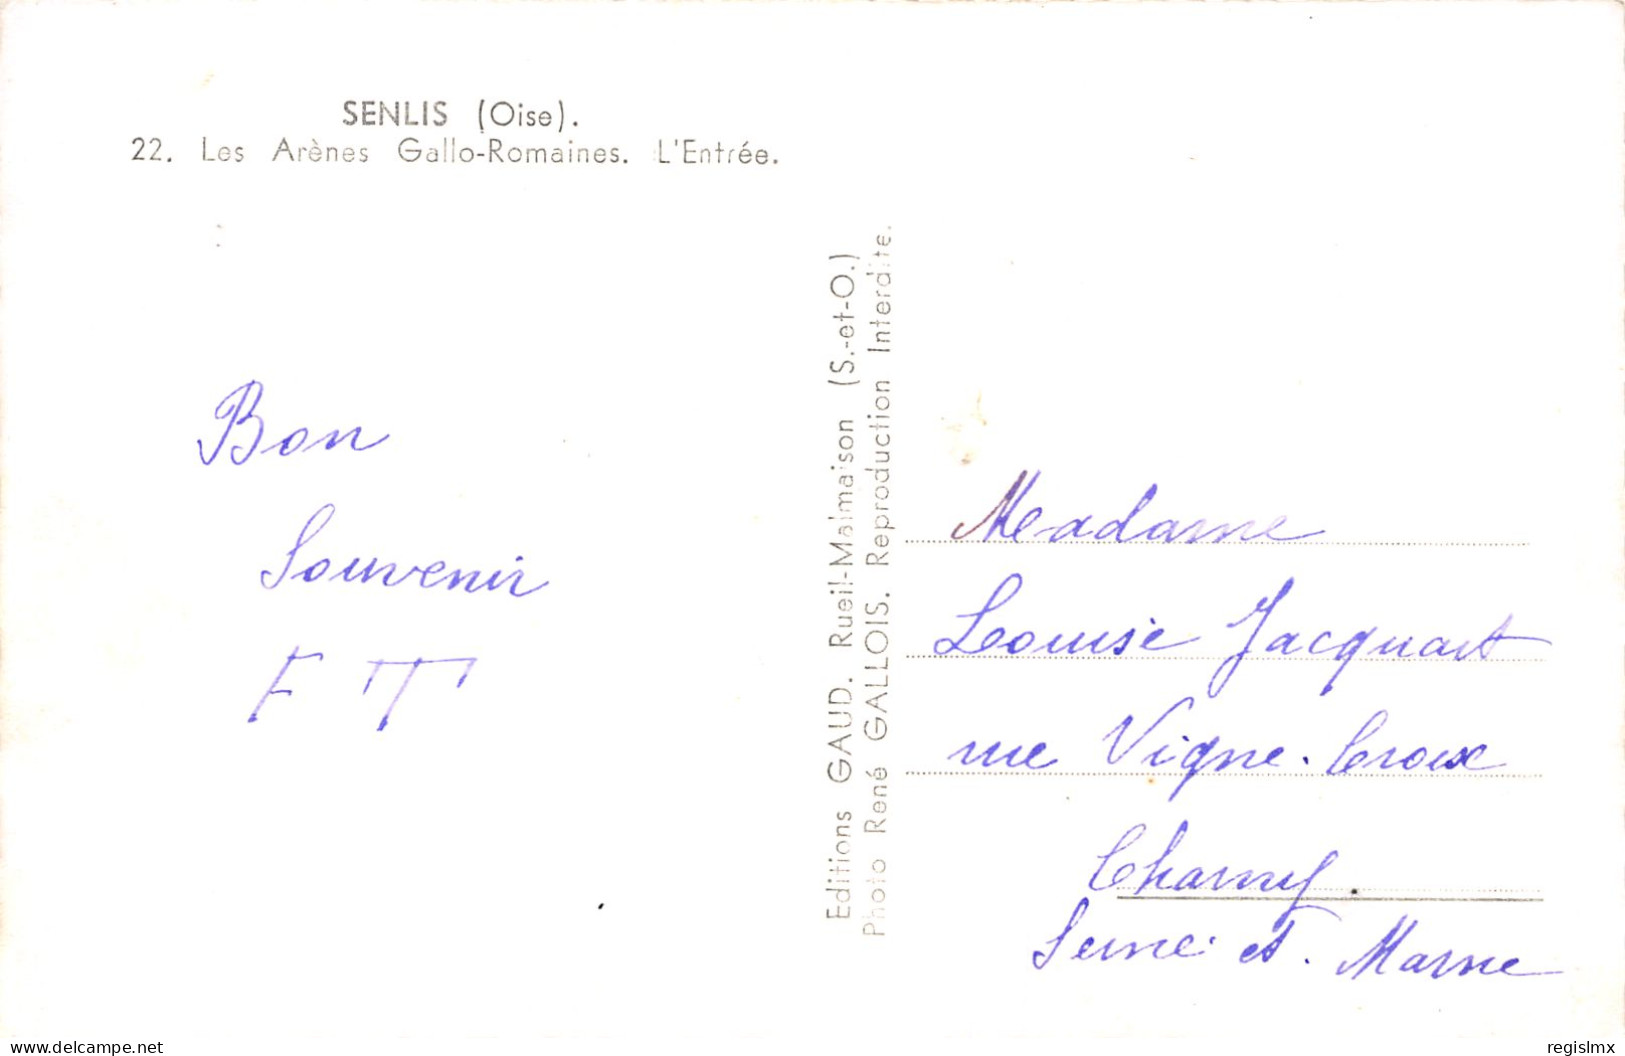 SENLIS (Oise).
22. Les Arènes Gallo-Romaines. L'Entrée.
Bon
Souvenir
F T
Editions GAUD. Rueil-Malmaison (S.-et-O.)
Photo René GALLOIS. Reproduction Interdite.
Madame
Louise Jacquart
rue Vigne-Croix
Charny.
Seine et. Marne
www.delcampe.net
regislmx